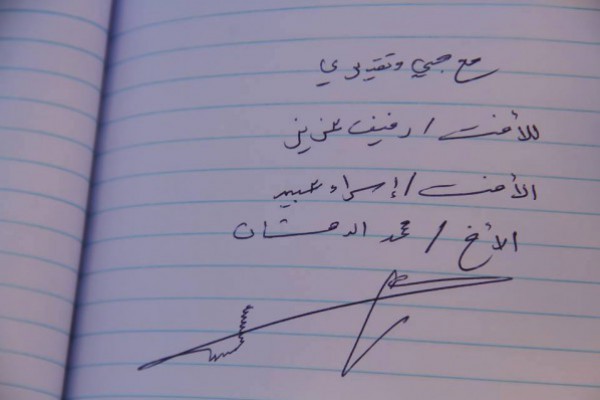 مع حبي وتقديري
للأخت / رفيف عزيز
الأخت / إسراء عبيد
الأخ / محمد الدهشان